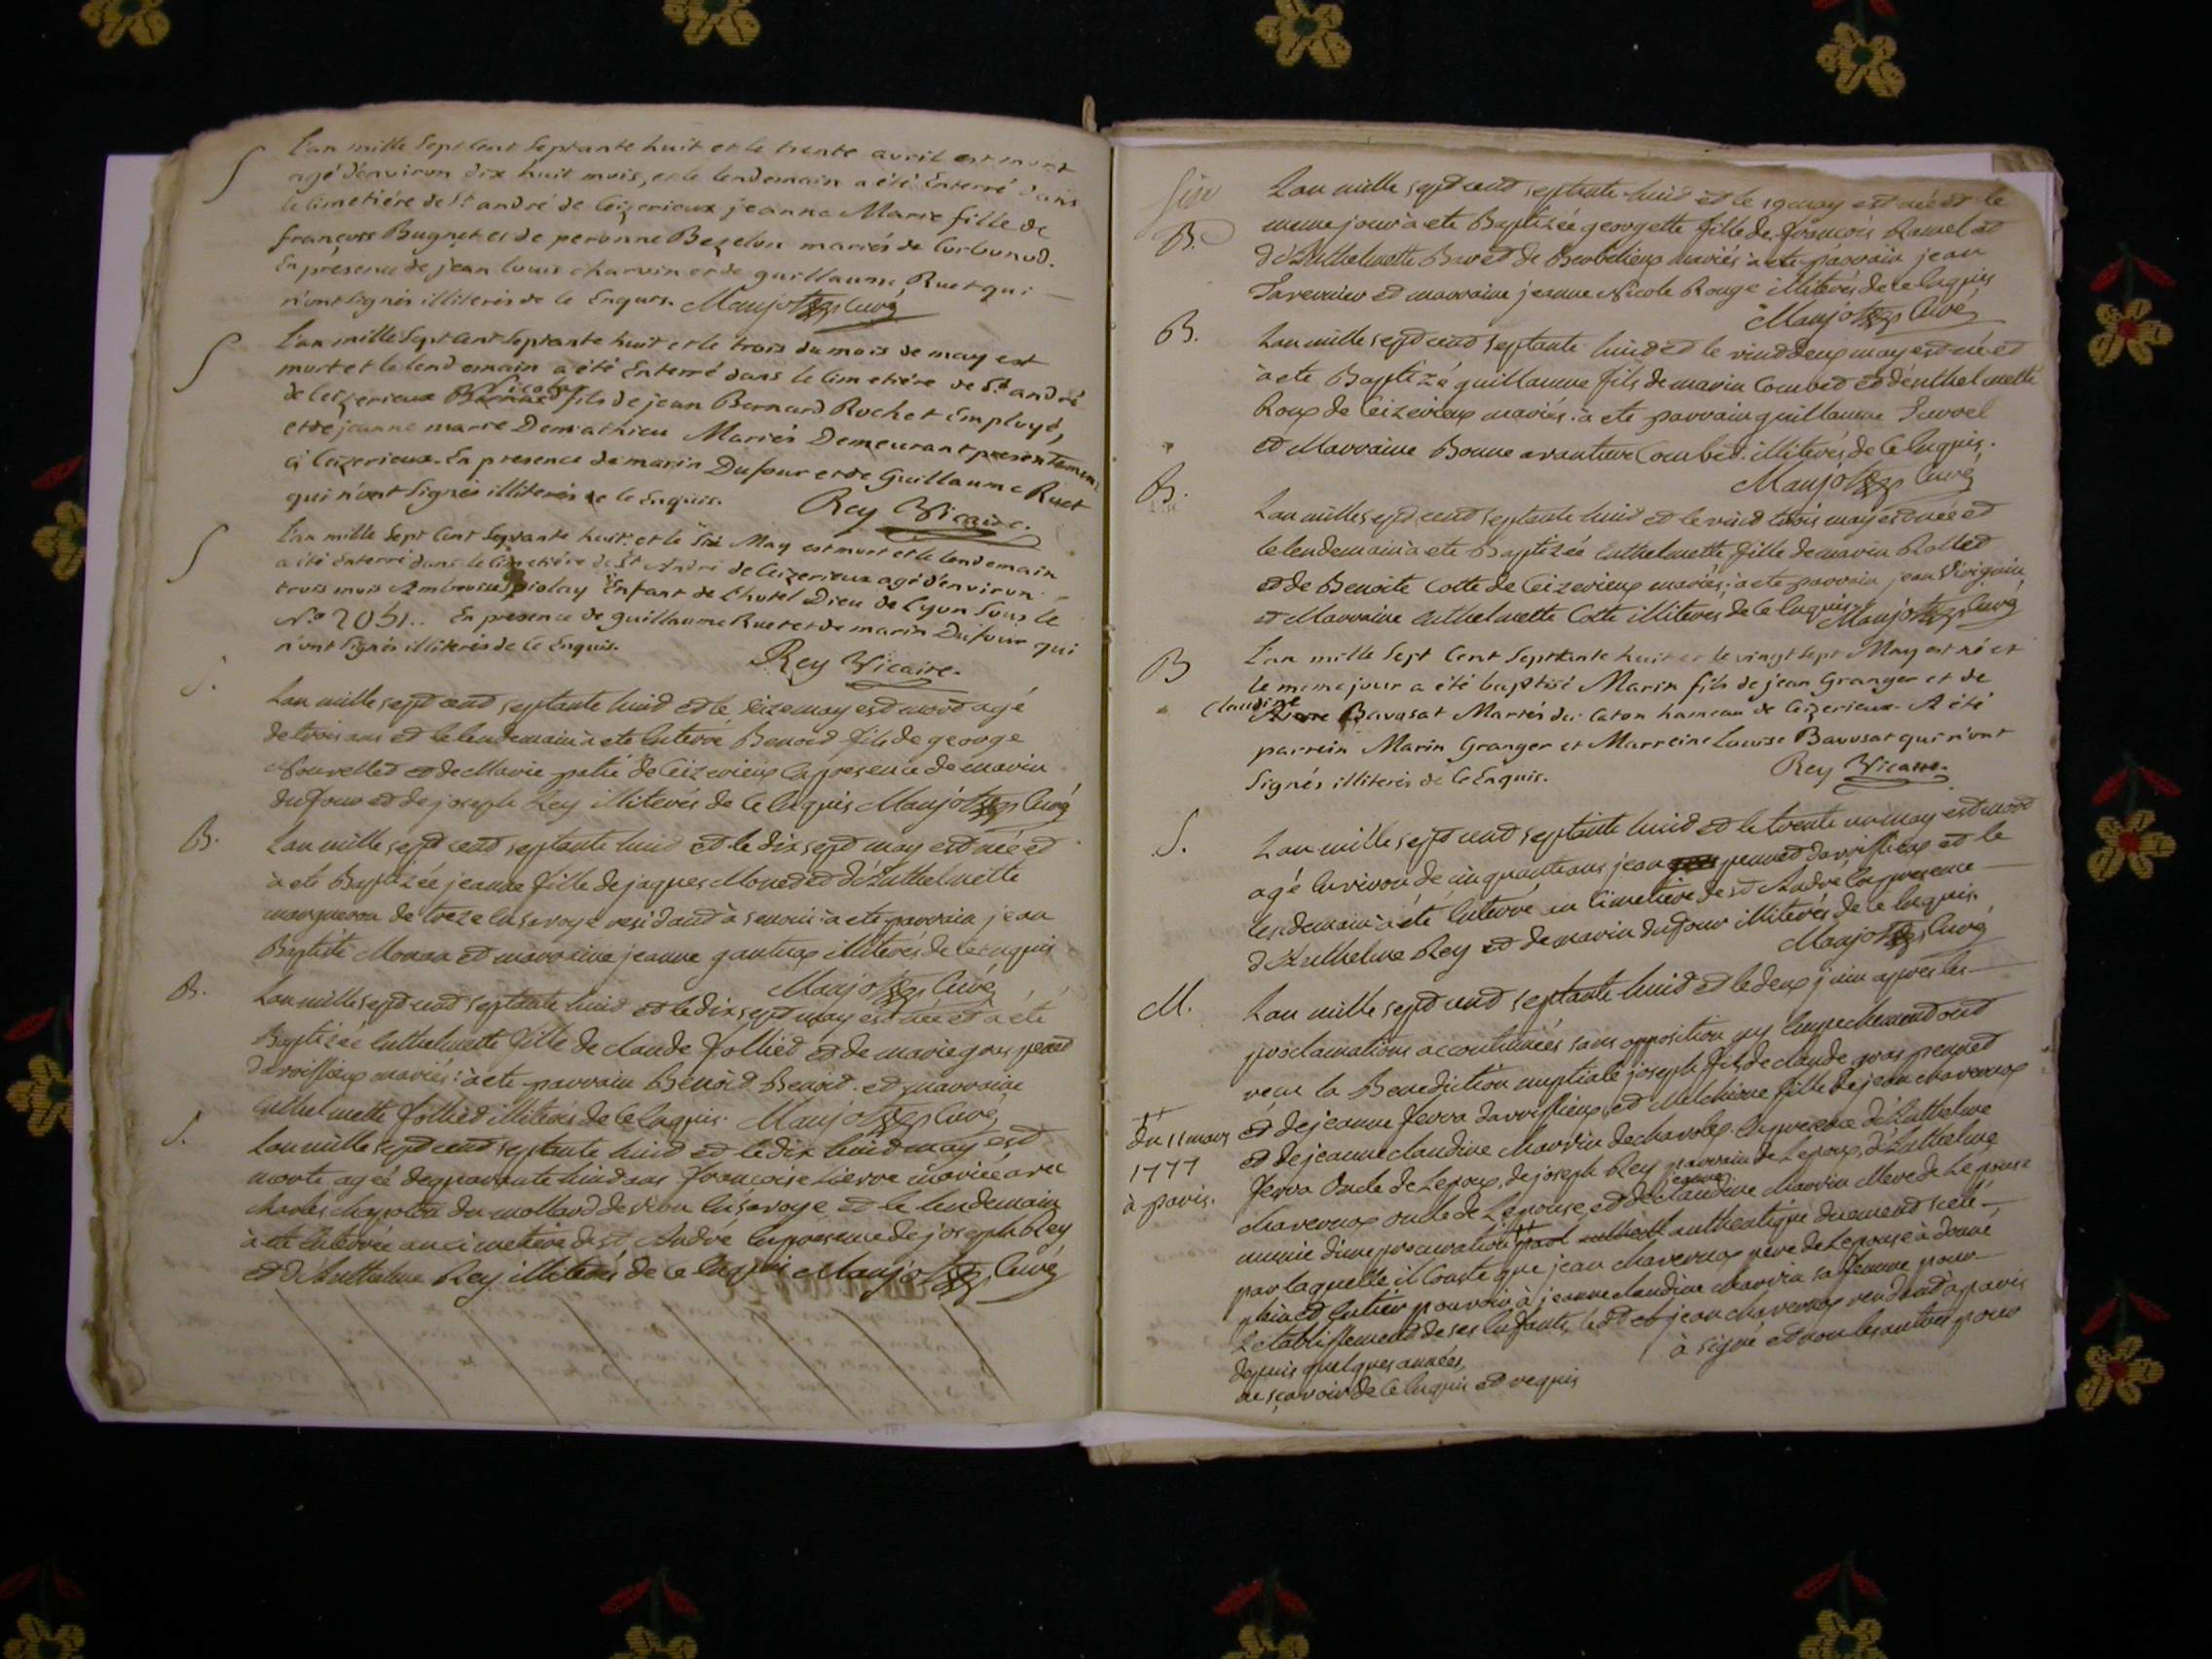 S L'an mille Sept Cent Septante huit et le trente avril est mort
agé d'environ dix huit mois, et le lendemain a été Enterré dans
le Cimetiére de St andré de Ceizerieux jeanne Marie fille de
françois Bugnet et de peronne Bezelon mariés de Corbonod.
En présence de jean louis charvin et de guillaume Ruet qui
n'ont Signés illiterés de le Enquis. Manjot Curé
S L'an mille Sept Cent Septante huit et le trois du mois de may est
mort et le lendemain a été Enterré dans le Cimetiére de St andré
Nicolas
de Ceizerieux fils de jean Bernard Rochet Employé,
et de jeanne marie Demathieu Mariés Demeurant presentement
à Ceizerieux. En presence de marin Dufour et de Guillaume Ruet
qui n'ont Signés illiterés de le Enquis. Rey Vicaire.
S L'an mille Sept Cent Septante huit et le Six May est mort et le lendemain
a été Enterré dans le Cimetiére de St André de Ceizerieux agé d'environ
trois mois Ambroise Enfant de l'hotel Dieu de Lyon Sous le
N.º 2051.. En presence de guillaume Ruet et de marin Dufour qui
n'ont Signés illiterés de le Enquis.
Rey Vicaire.
S. L'an mille sept cent septante huit et le seize may est mort agé
de trois ans et le lendemain à eté enterré Benoit fils de george
et de Marie patié de Ceizerieux en presence de marin
dufour et de joseph Rey illiterés de ce enquis Manjot Curé
B. L'an mille sept cent septante huit et le dix sept may est née et
à eté Baptizée jeanne fille de jaques Monet et d'Anthelmette
de en savoye residant à à eté parrain jean
Baptiste et marraine jeanne illiterés de ce enquis
Manjot Curé
B. L'an mille sept cent septante huit et le dix sept may est née et à eté
Baptizée enthelmette fille de claude Jolliet et de marie gros penet
d'avoissieux mariés: à eté parrain Benoit Benoit. et marraine
enthelmette Jolliet illiterés de ce enquis. Manjot Curé
S. L'an mille sept cent septante huit et le dix huit may est
morte agée de quarante huit ans françoise Lierre mariée avec
charles Chapotin du mollard de vion en savoye, et le lendemain
à eté enterrée au cimetiere de St André en presence de joseph Rey
et d'Anthelme Rey illiterés de ce enquis Manjot Curé
B. L'an mille sept cent septante huit et le 19 may est née et le
meme jour à eté Baptizée georgette fille de françois Ramel et
d'Anthelmette Bavet de mariés à eté parrain jean
et marraine jeanne Nicole Rouge illiterés de ce enquis
Manjot Curé
B. L'an mille sept cent septante huit et le vint deux may est né et
à eté Baptizé guillaume fils de marin Combet et d'enthelmette
Roux de Ceizerieux mariés: à eté parrain guillaume
et Marraine Bonne Combet illiterés de ce enquis.
Manjot Curé
B. L'an mille sept cent septante huit et le vint trois may est née et
le lendemain à eté Baptizée enthelmette fille de marin Rollet
et de Benoite Cotte de Ceizerieux mariés; à eté parrain jean
et Marraine enthelmette Cotte illiterés de ce enquis Manjot Curé
B L'an mille Sept Cent Septante huit et le vingt Sept May est né et
le meme jour a été baptisé Marin fils de jean Granger et de
Claudine
Bavosat Mariés du Caton hameau de Ceizerieux. A été
parrein Marin Granger et Marreine Louise Bavosat qui n'ont
Signés illiterés de le Enquis. Rey Vicaire.
S. L'an mille sept cent septante huit et le trente un may est mort
agé environ de cinquante ans jean pennet d'avoissieux et le
lendemain à eté enterré au cimetiere de St André en presence
d'Anthelme Rey et de marin dufour illiterés de ce enquis.
Manjot Curé
M. L'an mille sept cent septante huit et le deux juin apres les
proclamations accoutumées sans opposition ny empechement ont
recu la Benediction nuptiale joseph fils de claude gros pennet
et de jeanne ferra d'avoissieux, et Melchione fille de jean chavernox
et de jeanne claudine Marvin de en presence d'Anthelme
ferra Oncle de Lepoux, de joseph Rey parrain de Lepoux, d'Anthelme
jeanne
chavernox oncle de Lepouse, et de claudine Marvin Mere de Lepouse
munie d'une procuration authentique duement scelé
par laquelle il Conste que jean chavernox pere de Lepouse à donné
plein et entier pouvoir à jeanne claudine Marvin sa femme pour
L'etablissement de ses enfants, led et jean chavernox residant à paris
depuis quelques années à signé et non les autres pour
ne sçavoir de ce enquis et requis
du 11 mars
1777
à paris.